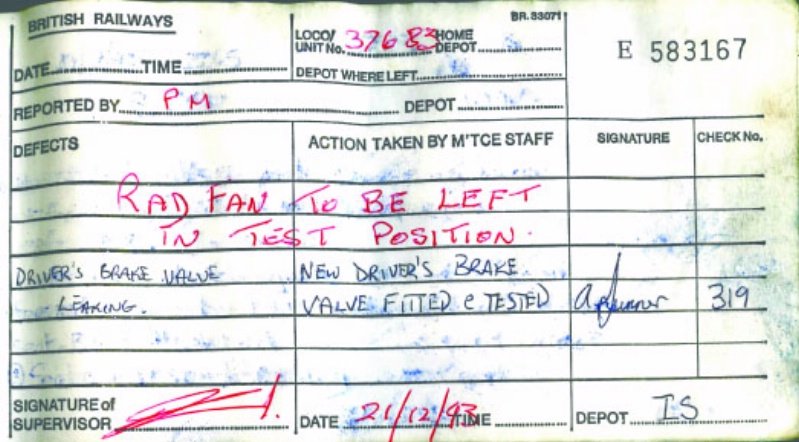 BRITISH RAILWAYS
BR.33071
LOCO/ UNIT No. 37683 HOME DEPOT
E 583167
DATE TIME
DEPOT WHERE LEFT
REPORTED BY PM DEPOT
DEFECTS ACTION TAKEN BY M'TCE STAFF SIGNATURE CHECK No.
RAD FAN TO BE LEFT
IN TEST POSITION.
DRIVER'S BRAKE VALVE NEW DRIVER'S BRAKE
LEAKING. VALVE FITTED & TESTED 319
SIGNATURE of SUPERVISOR DATE 21/12/93 TIME DEPOT IS